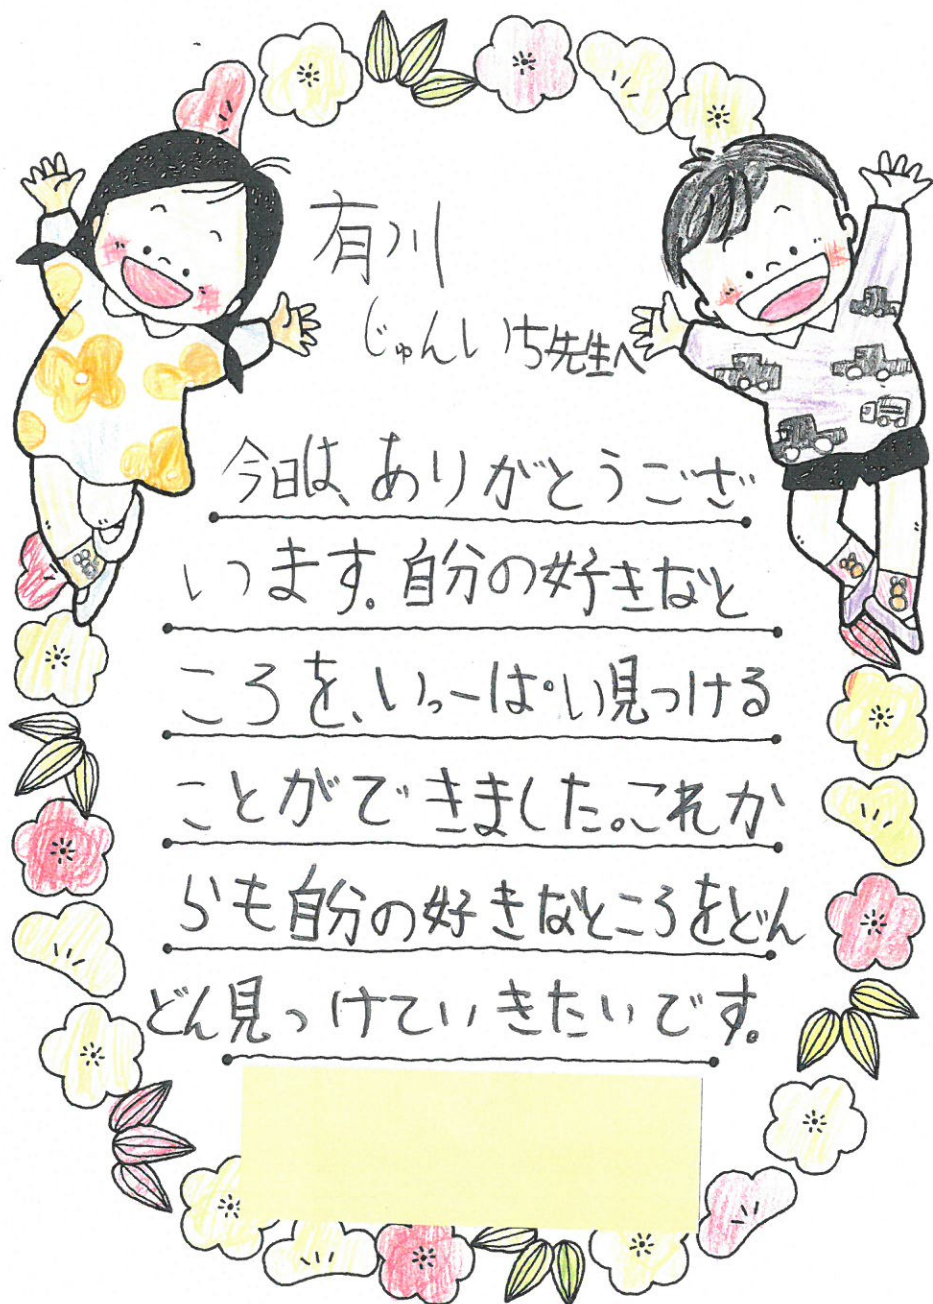 有川
じゅんいち先生へ
今日は、ありがとうござ
います。自分の好きなと
ころを、いっーぱい見つける
ことができました。これか
らも自分の好きなところをどん
どん見つけていきたいです。